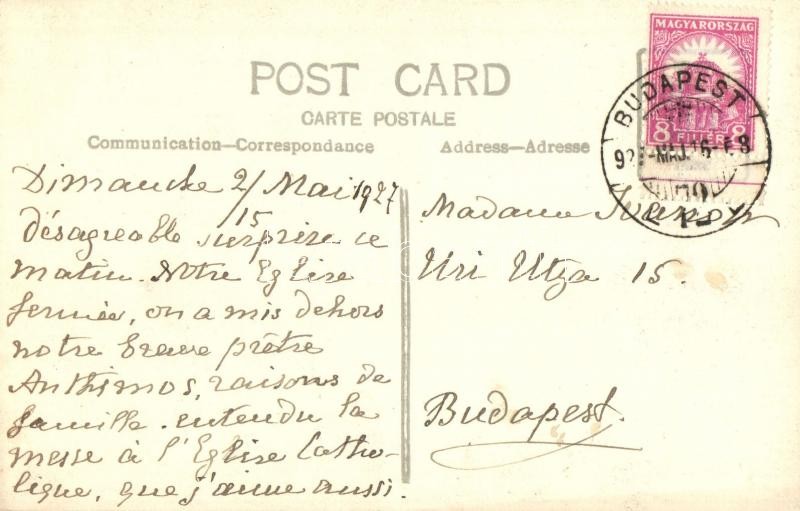 POST CARD
CARTE POSTALE
Communication—Correspondance
Address—Adresse
MAGYARORSZÁG
8 FILLÉR 8
BUDAPEST
MAJ. 16
Dimanche 2/15 Mai 1927
désagreable surprise ce
matin. Notre Eglise
fermée, on a mis dehors
notre brave prêtre
Anthimos, raisons de
famille. entendu la
messe à l'Eglise Catho-
lique, que j'aime aussi.
Madame
Uri Utza 15.
Budapest.